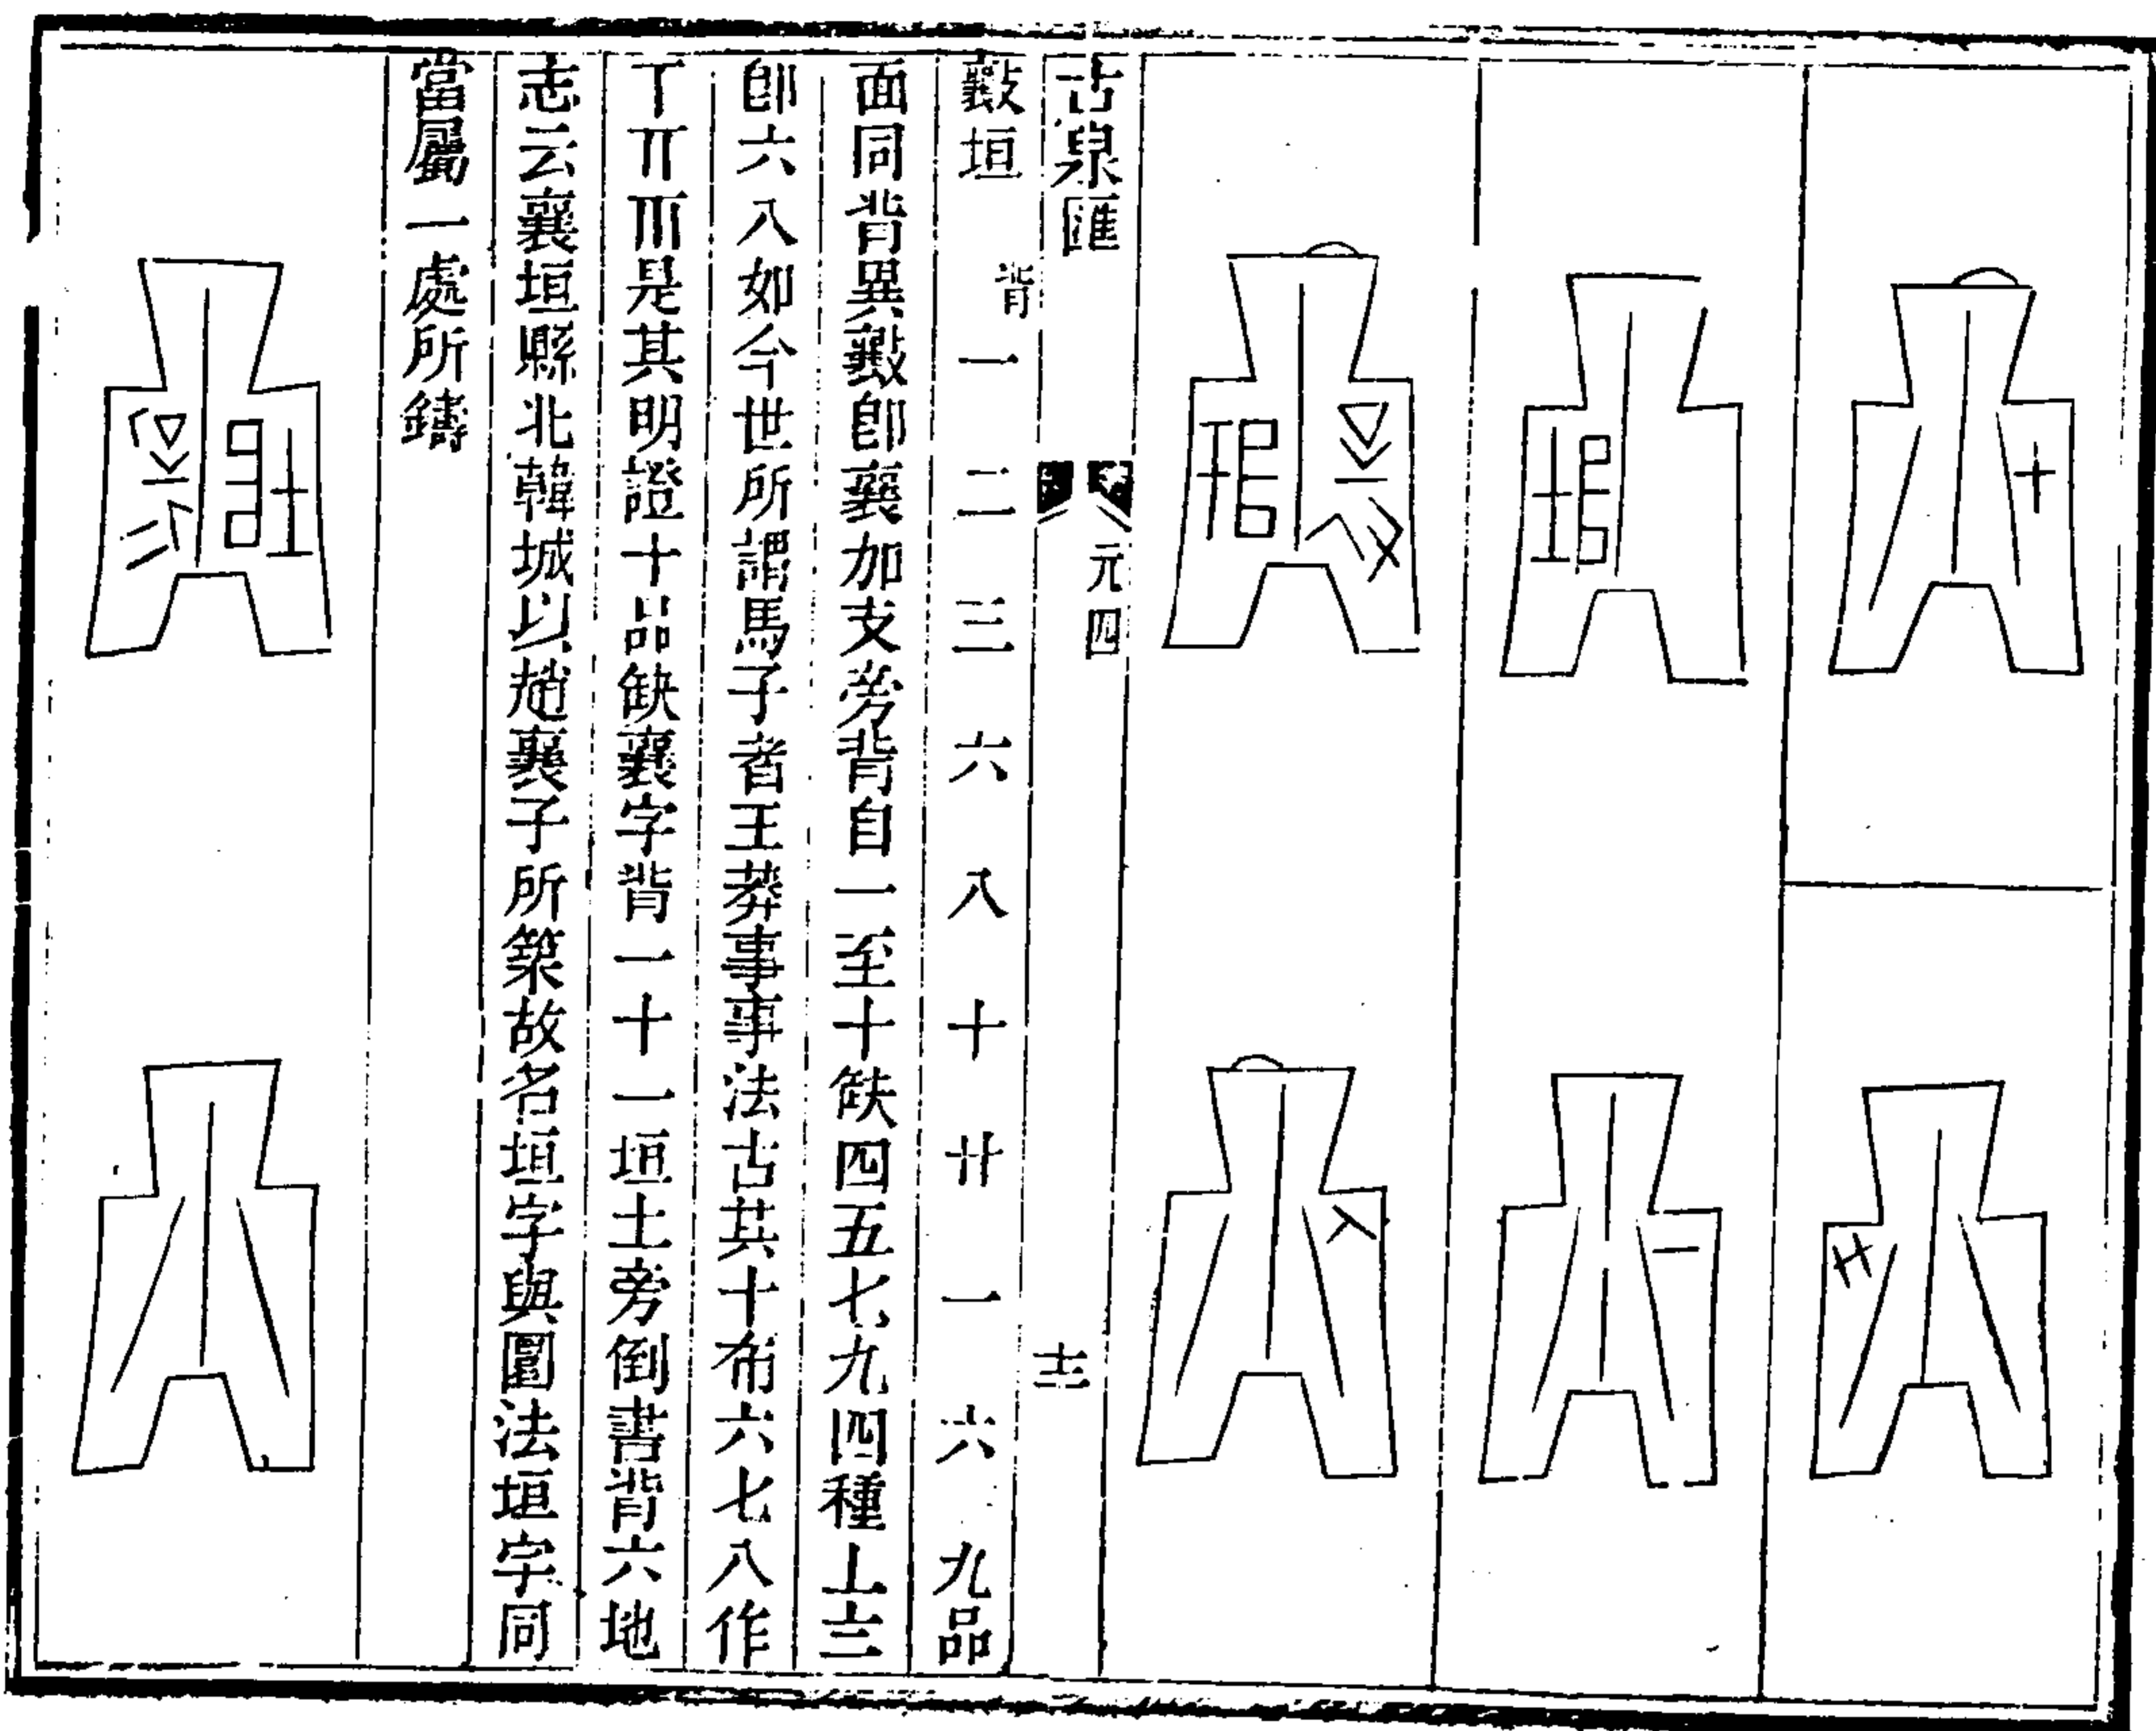 古泉匯
元四
十三
背
垣 一 二 三 六 八 十 廿 一 六 九品
面同背異即襄加支旁背自一至十缺四五七九四種丄亖
卽六八如今世所謂馬子者王莽事事法古其十布六七八作
丅𠀁𠀂是其明證十品缺襄字背一十一垣土旁倒書背六地
志云襄垣縣北韓城以趙襄子所築故名垣字與圜法垣字同
當屬一處所鑄